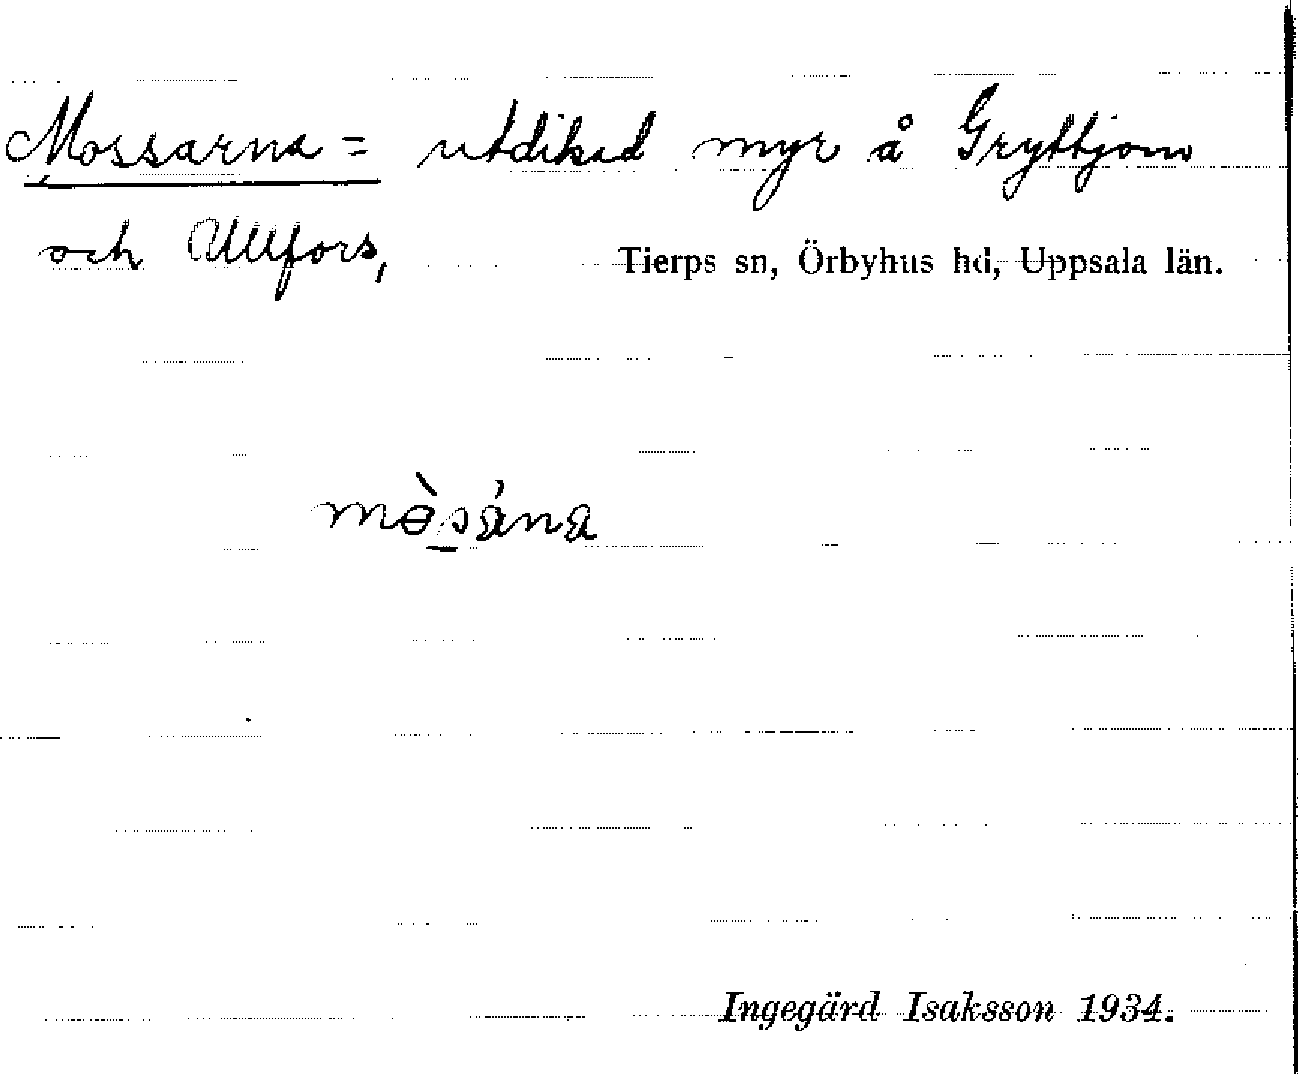 Mossarna = utdikad myr å Gryttjom
och Ullfors, Tierps sn, Örbyhus hd, Uppsala län.
mɵ̀sa̓na
Ingegärd Isaksson 1934.